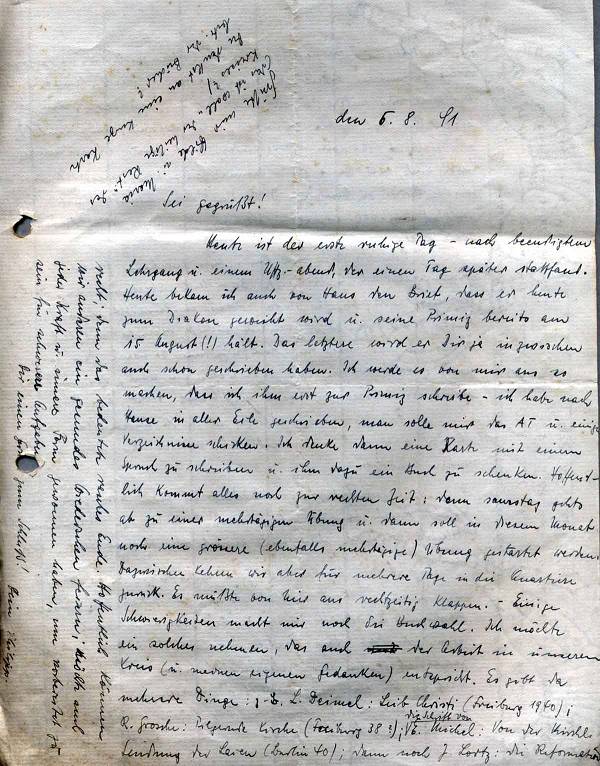 den 6. 8. 41
Sei gegrüßt!
Heute ist der erste ruhige Tag – nach beendigtem
Lehrgang u. einem Uffz.-abend, der einen Tag später stattfand.
Heute bekam ich auch von Hans den Brief, dass er heute
zum Diakon geweiht wird u. seine Primiz bereits am
15 August(!) hält. Das letztere wird er Dir ja inzwischen
auch schon geschrieben haben. Ich werde es von mir aus so
machen, dass ich ihm erst zur Primiz schreibe – ich habe nach
Hause in aller Eile geschrieben, man solle mir das AT u. einige
Verzeichnisse schicken. Ich denke dann eine Karte mit einem
Spruch zu schreiben u. ihm dazu ein Buch zu schenken. Hoffent-
lich kommt alles noch zur rechten Zeit: denn samstag gehts
ab zu einer mehrtägigen Übung u. dann soll in diesem Monat
noch eine grössere (ebenfalls mehrtägige) Übung gestartet werden.
Dazwischen kehren wir aber für mehrere Tage in die Quartiere
zurück. Es müßte von hier aus rechtzeitig klappen. – Einige
Schwierigkeiten macht mir noch die Buchwahl. Ich möchte
ein solches nehmen, das auch der Arbeit in unserem
Kreis (u. meinen eigenen Gedanken) entspricht. Es gibt da
mehrere Dinge: L. Deimel: Leib Christi (Freiburg 1940);
R. Grosche: Pilgernde Kirche (Freiburg 38?); die Schrift von E. Michel: Von der kirchl.
Sendung der Laien (Berlin 40); dann noch J. Lortz: die Reformation
recht, denn das bedeutet rasches Ende. Hoffentlich können
wir anderen ein gesundes Wiedersehen feiern; möchte auch
jeder Kraft u. innere Form gewonnen haben, um vorbereitet zu
sein für schwerere Aufgaben
Dir einen Gruß zum Schluß!
Dein
Grüße mir Hilde u. Maria